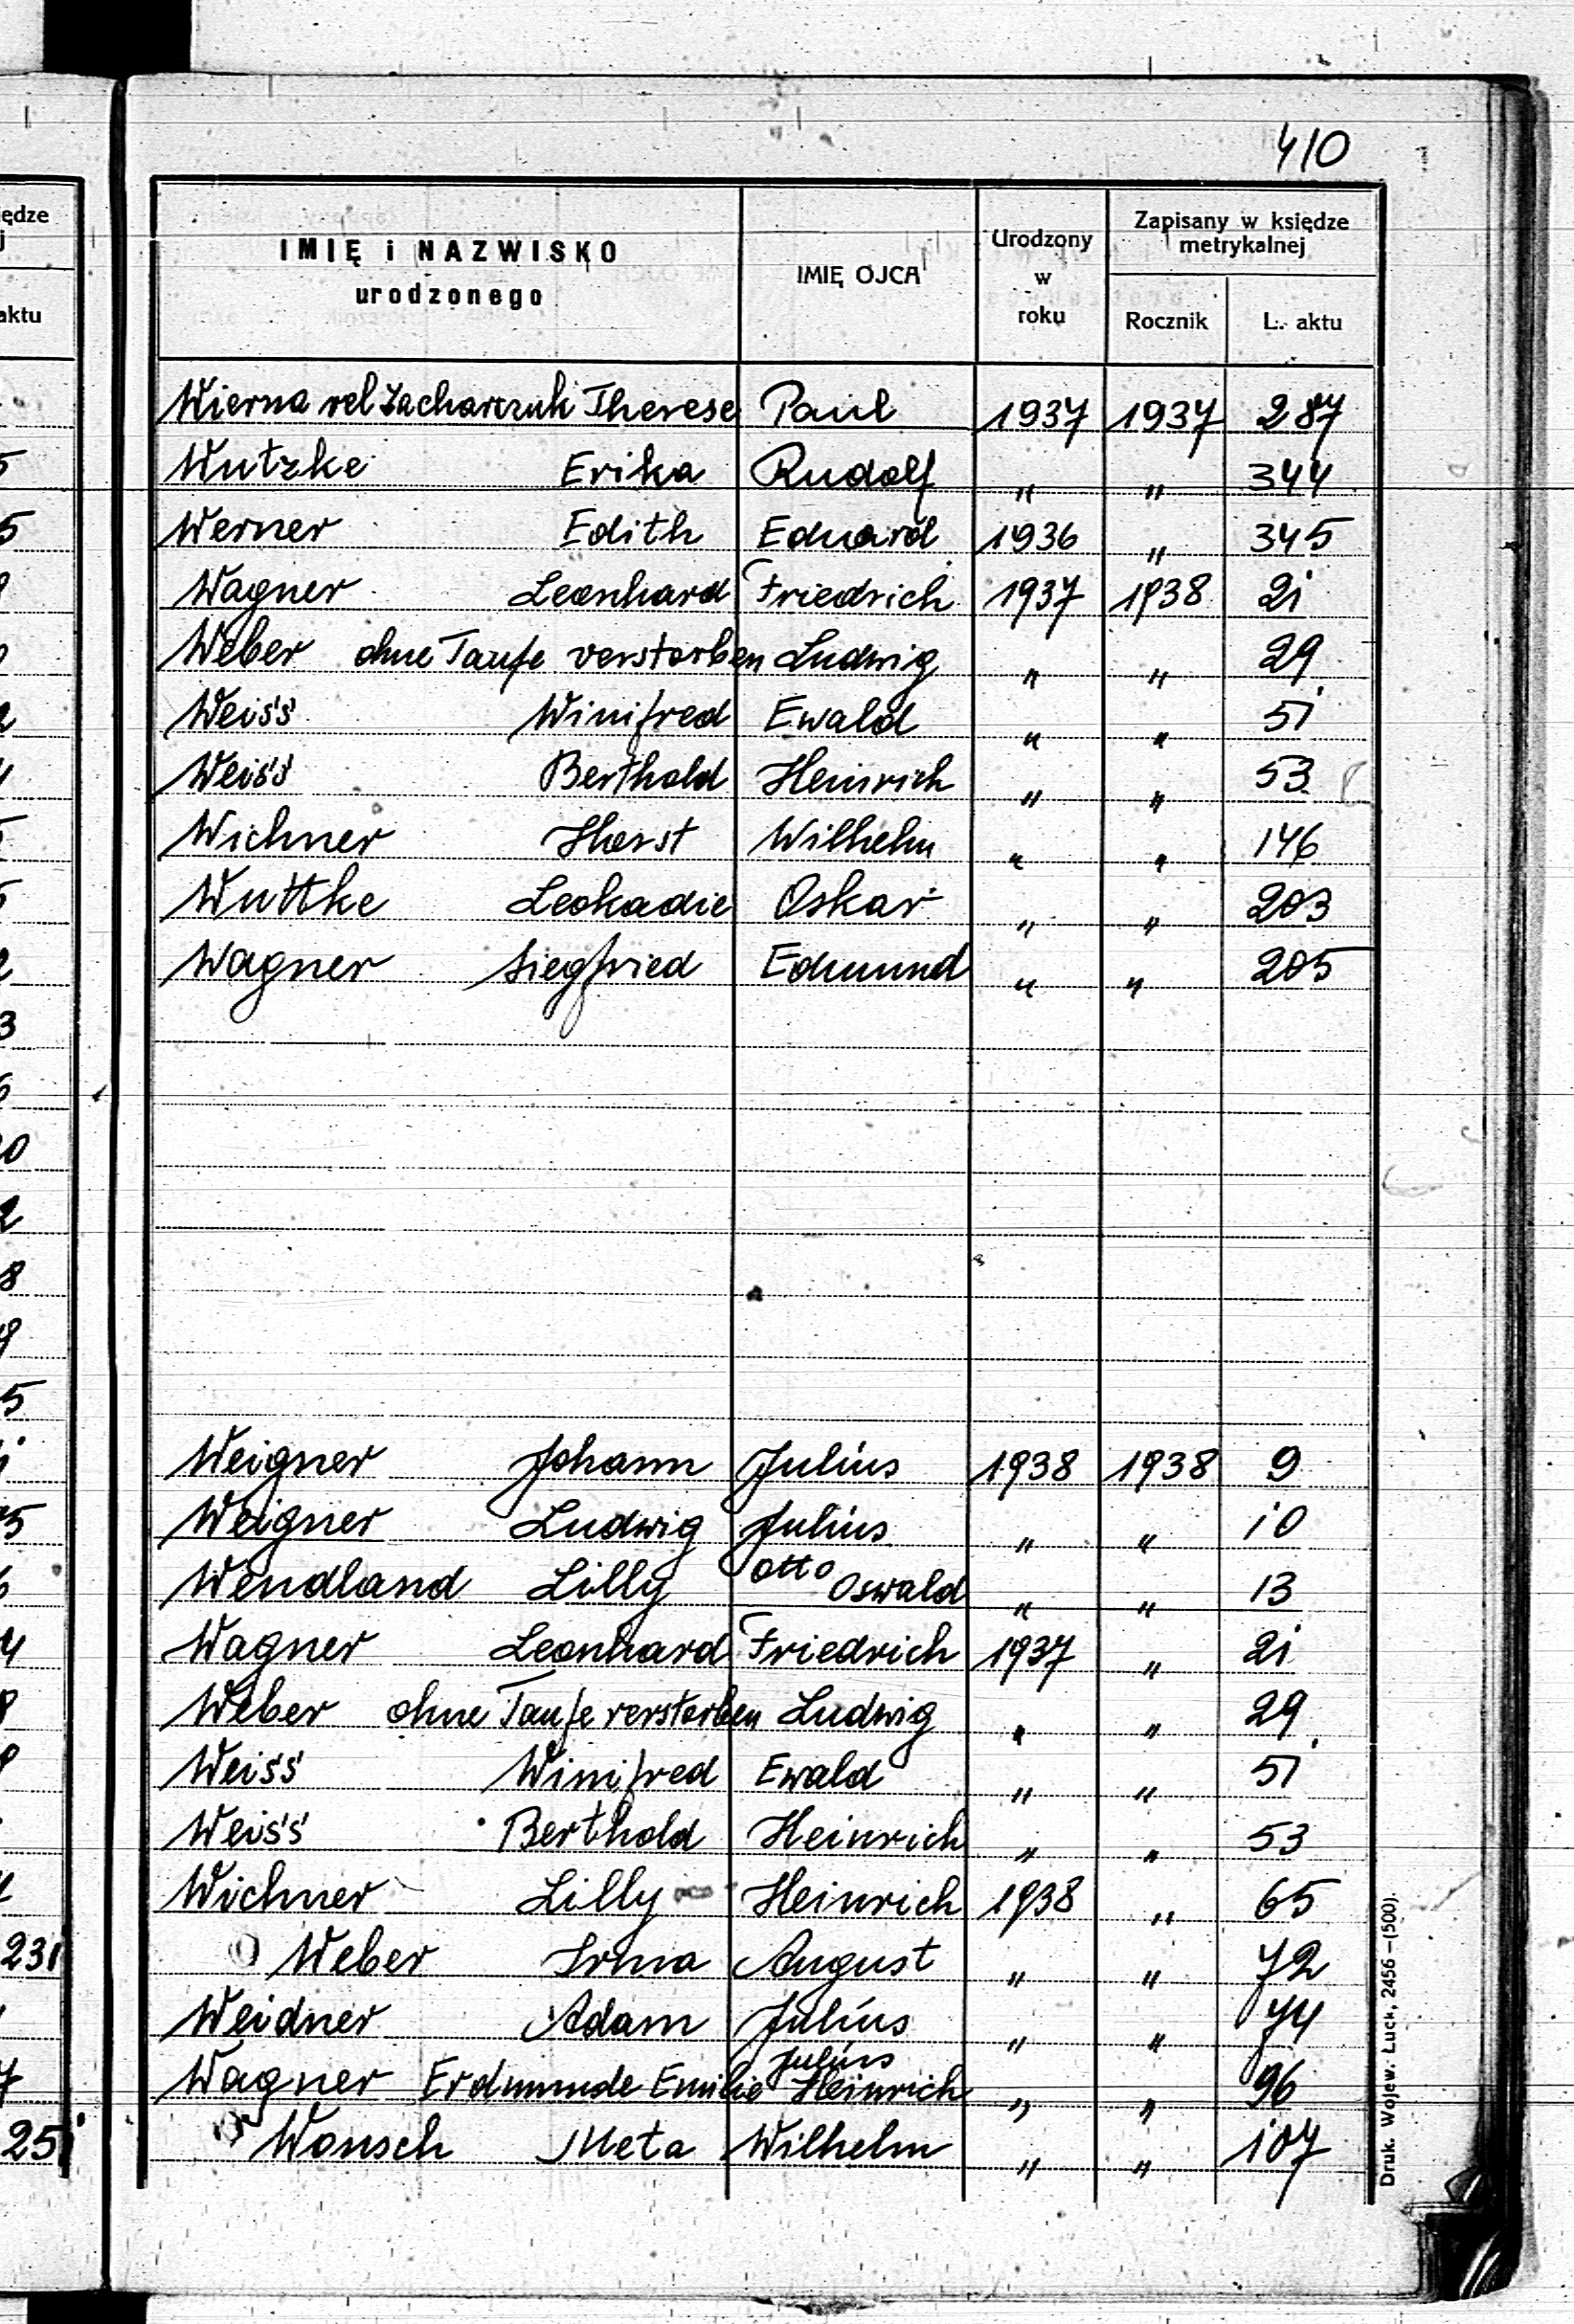 410
IMIĘ i NAZWISKO urodzonego IMIĘ OJCA Urodzony w roku Zapisany w księdze metrykalnej
Rocznik L. aktu
Wierna vel Zacharczuk Therese Paul 1937 1937 287
Wutzke Erika Rudolf " " 344
Werner Edith Eduard 1936 " 345
Wagner Leonhard Friedrich 1937 1938 21
Weber ohne Taufe verstorben Ludwig " " 29
Weiss Winifred Ewald " " 51
Weiss Berthold Heinrich " " 53
Wichner Horst Wilhelm " " 146
Wuttke Leokadie Oskar " " 203
Wagner Siegfried Edmund " " 205
Weigner Johann Julius 1938 1938 9
Weigner Ludwig Julius " " 10
Wendland Lilly Otto Oswald " " 13
Wagner Leonhard Friedrich 1937 " 21
Weber ohne Taufe verstorben Ludwig " " 29
Weiss Winifred Ewald " " 51
Weiss Berthold Heinrich " " 53
Wichner Lilly Heinrich 1938 " 65
Weber Irma August " " 72
Weidner Adam Julius " " 74
Wagner Erdmunde Emilie Julius Heinrich " " 96
Wonsch Meta Wilhelm " " 107
Druk. Wojew. Łuck, 2456—(500).
iędze
aktu
231
251